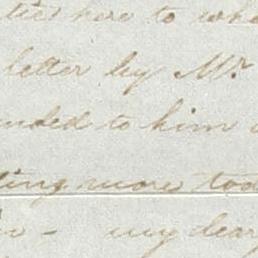 ties here to whe
letter by Mr.
nded to him
ting more tod
my dear